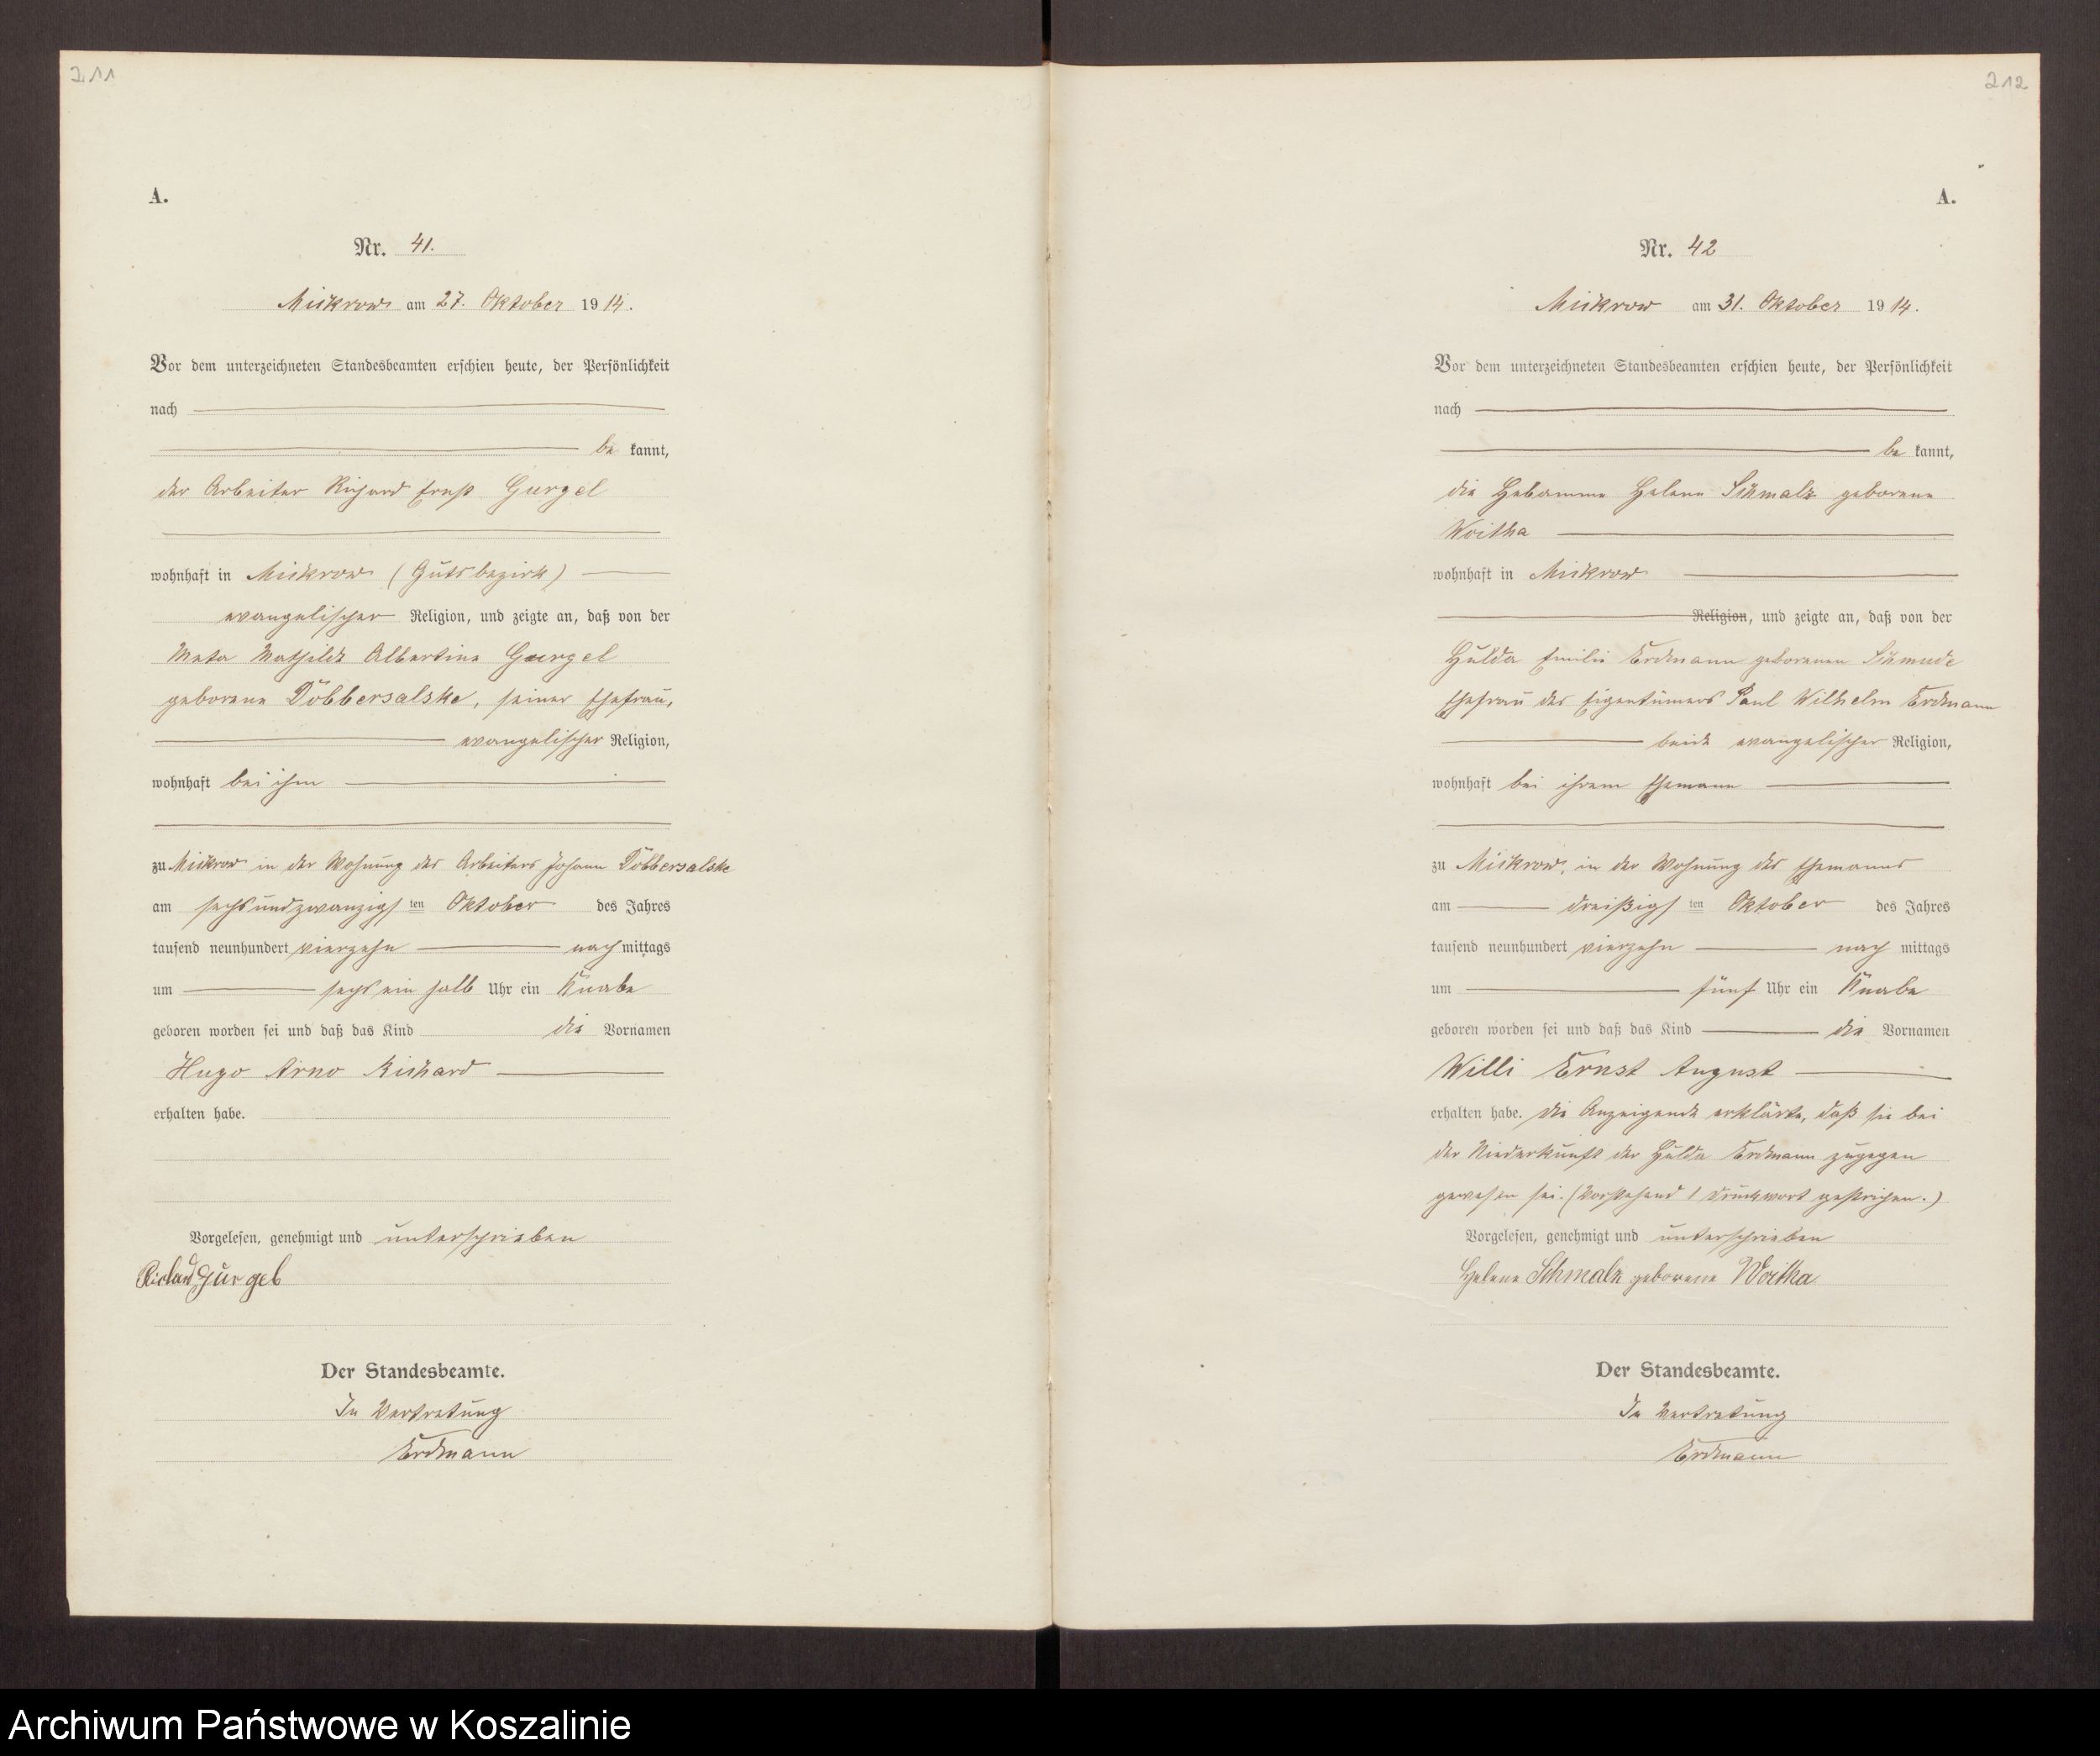 211
A.
Nr. 41.
Mickrow am 27. Oktober 1914.
Vor dem unterzeichneten Standesbeamten erschien heute, der Persönlichkeit
nach
be kannt,
der Arbeiter Richard Ernst Gurgel
wohnhaft in Mickrow (Gutsbezirk)
evangelischer Religion, und zeigte an, daß von der
Meta Mathilde Albertine Gurgel
geborene Döbbersalske, seiner Ehefrau,
evangelischer Religion,
wohnhaft bei ihm
zu Mickrow in der Wohnung des Arbeiters Johann Döbbersalske
am sechsundzwanzigsten Oktober des Jahres
tausend neunhundert vierzehn nachmittags
um sechs ein halb Uhr ein Knabe
geboren worden sei und daß das Kind die Vornamen
Hugo Arno Richard
erhalten habe.
Vorgelesen, genehmigt und unterschrieben
Richard Gurgel
Der Standesbeamte.
In Vertretung
Erdmann
212
A.
Nr. 42
Mickrow am 31. Oktober 1914.
Vor dem unterzeichneten Standesbeamten erschien heute, der Persönlichkeit
nach
be kannt,
die Hebamme Helene Schmalz geborene
Woitha
wohnhaft in Mickrow
Religion, und zeigte an, daß von der
Hulda Emilie Erdmann geborenen Schmude
Ehefrau des Eigentümers Paul Wilhelm Erdmann
beide evangelischer Religion,
wohnhaft bei ihrem Ehemann
zu Mickrow, in der Wohnung des Ehemanns
am dreißigsten Oktober des Jahres
tausend neunhundert vierzehn nach mittags
um fünf Uhr ein Knabe
geboren worden sei und daß das Kind die Vornamen
Willi Ernst August
erhalten habe. Die Anzeigende erklärte, daß sie bei
der Niederkunft der Hulda Erdmann zugegen
gewesen sei. (Vorstehend 1 Druckwort gestrichen.)
Vorgelesen, genehmigt und unterschrieben
Helene Schmalz geborene Woitha
Der Standesbeamte.
In Vertretung
Erdmann
Archiwum Państwowe w Koszalinie